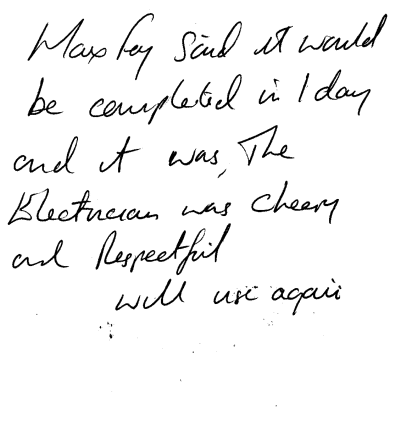 Max Foy Said it would
be completed in 1 day
and it was, The
Electrician was cheery
and Respectful
will use again